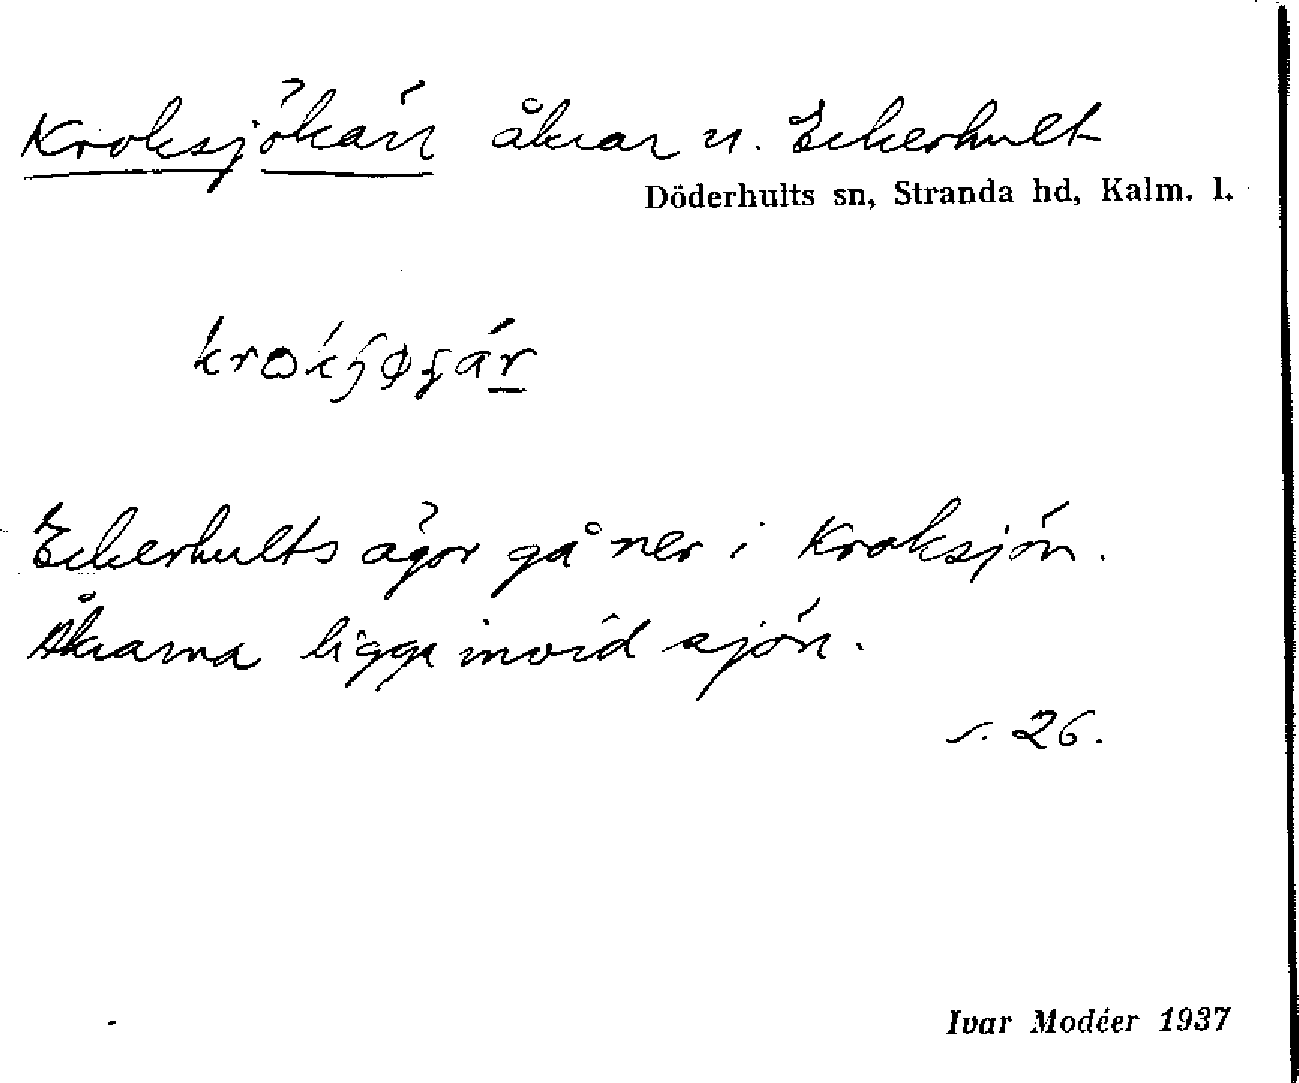 Kroksjökärr åkrar u. Eckerhult
Döderhults sn, Stranda hd, Kalm. l.
Eckerhults ägor gå ner i Kroksjön.
Åkrarna ligga invid sjön.
s. 26.
Ivar Modéer 1937